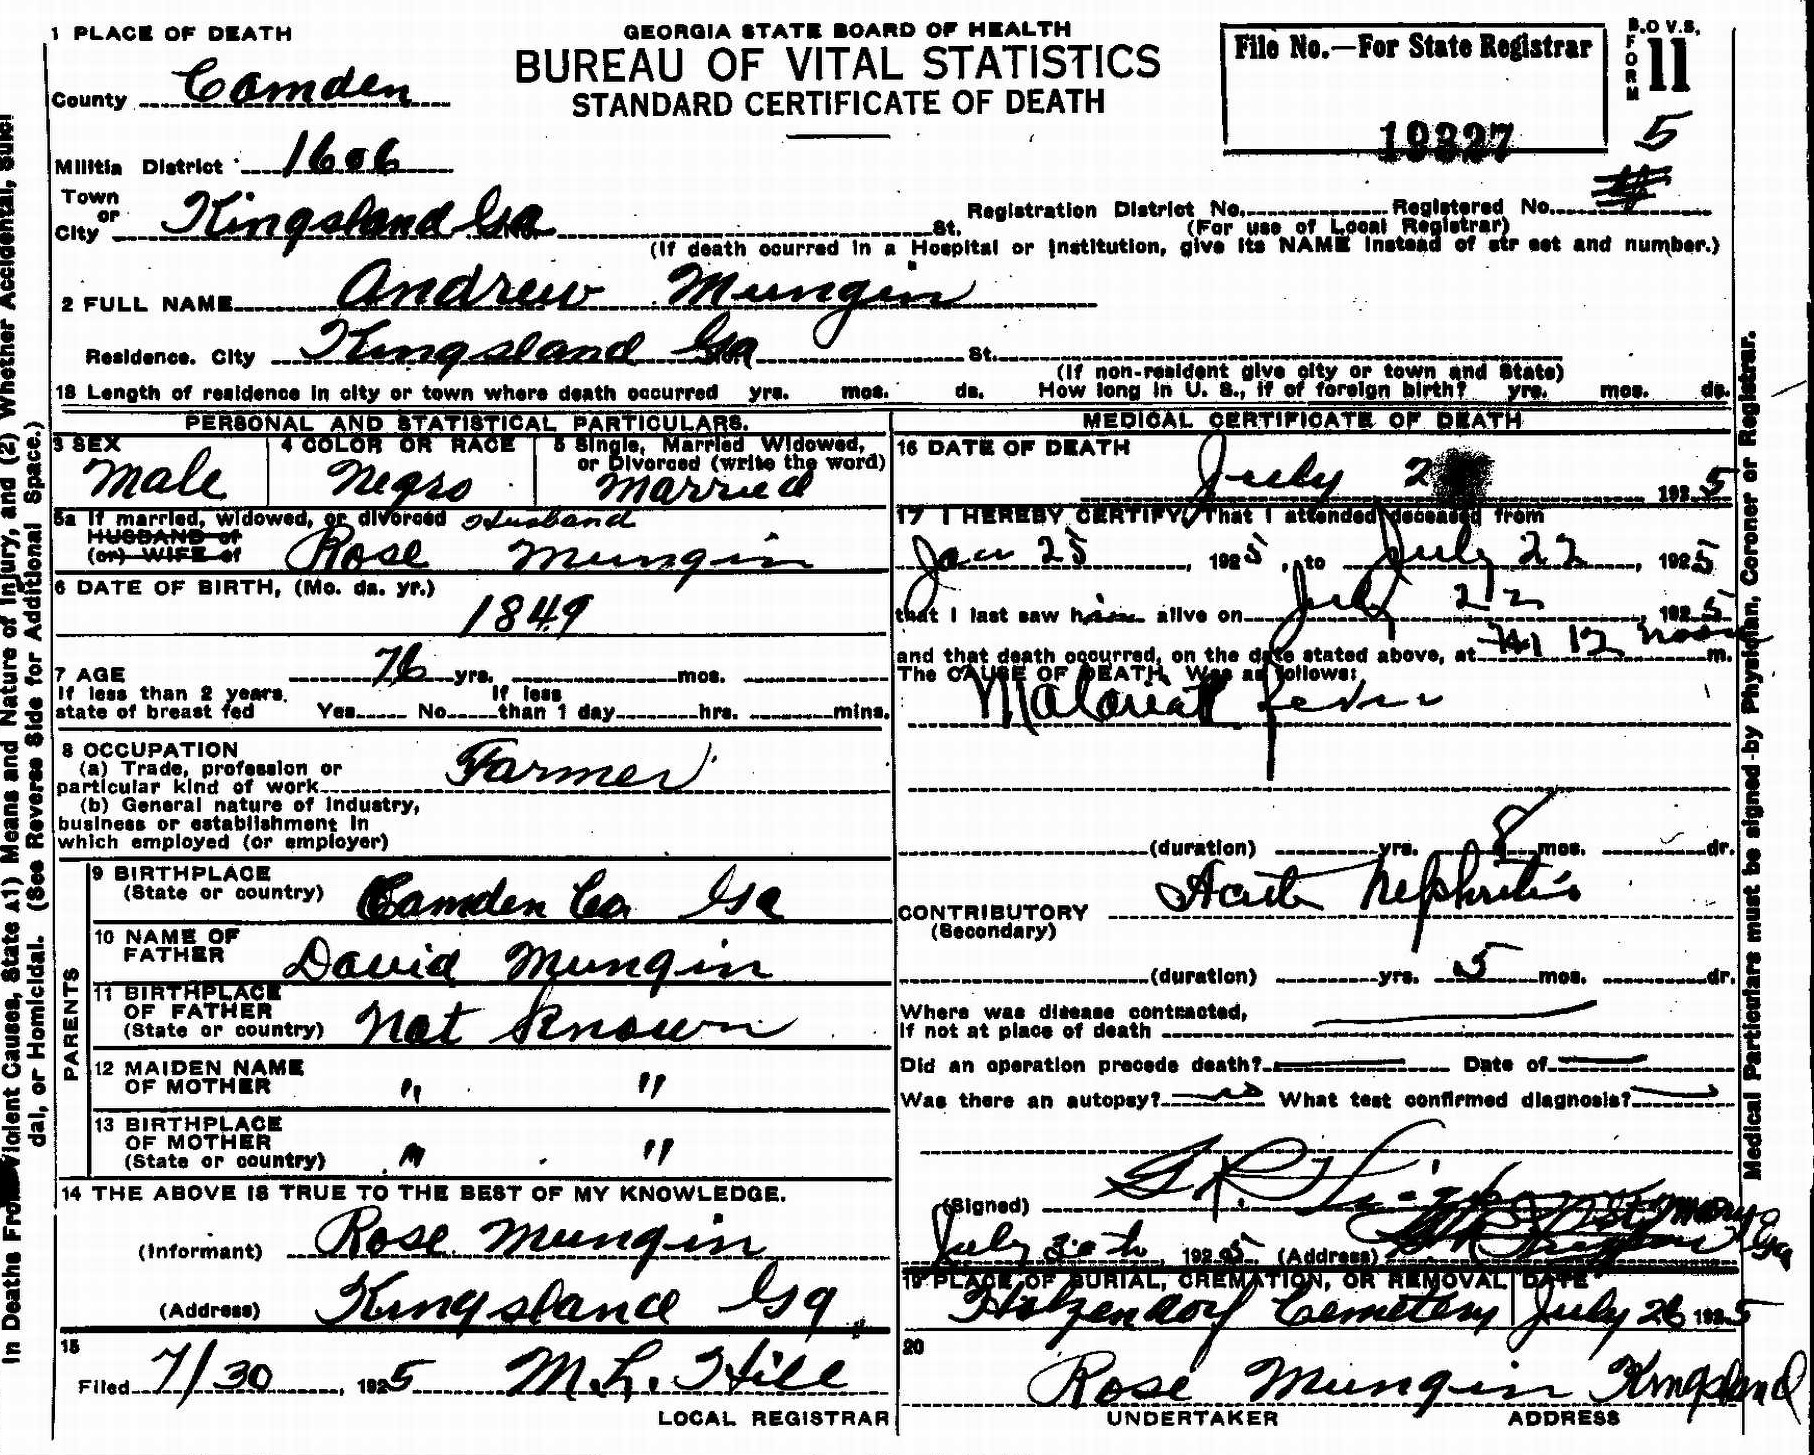 1 PLACE OF DEATH
GEORGIA STATE BOARD OF HEALTH
BUREAU OF VITAL STATISTICS
STANDARD CERTIFICATE OF DEATH
File No.—For State Registrar
19327
B.O V.S.
FORM 11
5
County Camden
Militia District 1606
Town or City Kingsland Ga St.
Registration District No. Registered No.
(For use of Local Registrar)
(If death ocurred in a Hospital or Institution, give its NAME instead of str eet and number.)
2 FULL NAME Andrew Mungin
Residence. City Kingsland Ga St.
(If non-resident give city or town and State)
18 Length of residence in city or town where death occurred yrs. mos. ds. How long in U. S., if of foreign birth? yrs. mos. ds.
PERSONAL AND STATISTICAL PARTICULARS.
3 SEX
Male
4 COLOR OR RACE
Negro
5 Single, Married Widowed,
or Divorced (write the word)
Married
5a If married, widowed, or divorced Husband
HUSBAND of
(or) WIFE of Rose Mungin
6 DATE OF BIRTH, (Mo. da. yr.)
1849
7 AGE 76 yrs. mos.
If less than 2 years, If less
state of breast fed Yes No than 1 day hrs. mins.
8 OCCUPATION
(a) Trade, profession or
particular kind of work Farmer
(b) General nature of Industry,
business or establishment in
which employed (or employer)
PARENTS
9 BIRTHPLACE
(State or country) Camden Co Ga
10 NAME OF
FATHER David Mungin
11 BIRTHPLACE
OF FATHER
(State or country) Not Known
12 MAIDEN NAME
OF MOTHER " "
13 BIRTHPLACE
OF MOTHER
(State or country) " "
14 THE ABOVE IS TRUE TO THE BEST OF MY KNOWLEDGE.
(Informant) Rose Mungin
(Address) Kingsland Ga
15
Filed 7/30, 1925 M. L. Hill
LOCAL REGISTRAR
MEDICAL CERTIFICATE OF DEATH
16 DATE OF DEATH
July 2 1925
17 I HEREBY CERTIFY, That I attended deceased from
Jan 25, 1925, to July 22, 1925
that I last saw him alive on July 22, 1925
and that death occurred, on the date stated above, at 12 noon m.
The CAUSE OF DEATH Was as follows:
Malarial fever
(duration) yrs. 8 mos. dr.
CONTRIBUTORY Acute Nephritis
(Secondary)
(duration) yrs. 5 mos. dr.
Where was disease contracted,
if not at place of death
Did an operation precede death? Date of
Was there an autopsy? no What test confirmed diagnosis?
(Signed)
July 30th, 1925 (Address) St Marys Ga
19 PLACE OF BURIAL, CREMATION, OR REMOVAL DATE
Holzendorf Cemetery July 26 1925
20
Rose Mungin Kingsland
UNDERTAKER ADDRESS
In Deaths From Violent Causes, State A1) Means and Nature of Injury, and (2) Whether Accidental, Suici
dal, or Homicidal. (See Reverse Side for Additional Space.)
Medical Particulars must be signed by Physician, Coroner or Registrar.